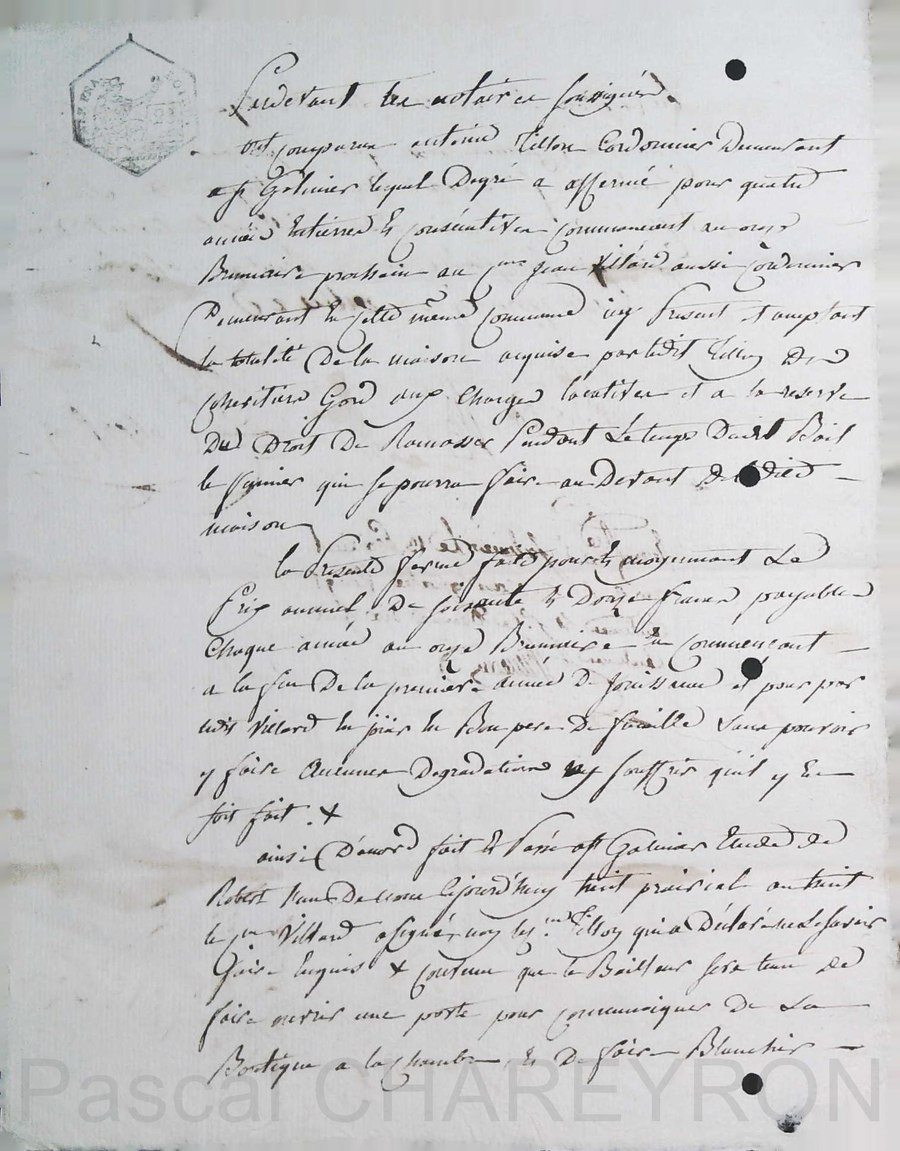 Pardevant les notaires soussignés
ont comparu antoine Tillon Cordonnier Demeurant
a st Galmier lequel Degré a affermé pour quatre
années Entierres & consécutives commencant au onze
Brumaire prochain au cen jean Villard aussi Cordonnier
Demeurant en cette même Commune icy Present & acceptant
la totalité De la maison acquise par ledit Tillon Des
cohéritiers aux charges locatives et a la reserve
Du Droit De Ramasser Pendant Le temps Dudit Bail
le fumier qui se pourra faire au Devant De ladite
maison
la Presente ferme faite pour & moyennant Le
Prix annuel De soixante & Douze francs payables
Chaque année au onze Brumaire En commencant
a la fin De la premiere année De jouissance et pour par
ledit Villard en jouir En Bon pere De famille sans pouvoir
y faire Aucunes Degradations ny souffrir qu'il y En
soit fait . +
ainsi D'accord fait & Passé a st Galmier Etude de
Robert L'un De nous Cejourd'huy huit prairial an huit
le cen Villard a signé, non led. Tillon qui a Déclaré ne Le savoir
faire Enquis + convenu que le Bailleur sera tenu de
faire ouvrir une porte pour communiquer De La
Boutique a la chambre & De faire Blanchir
Pascal CHAREYRON